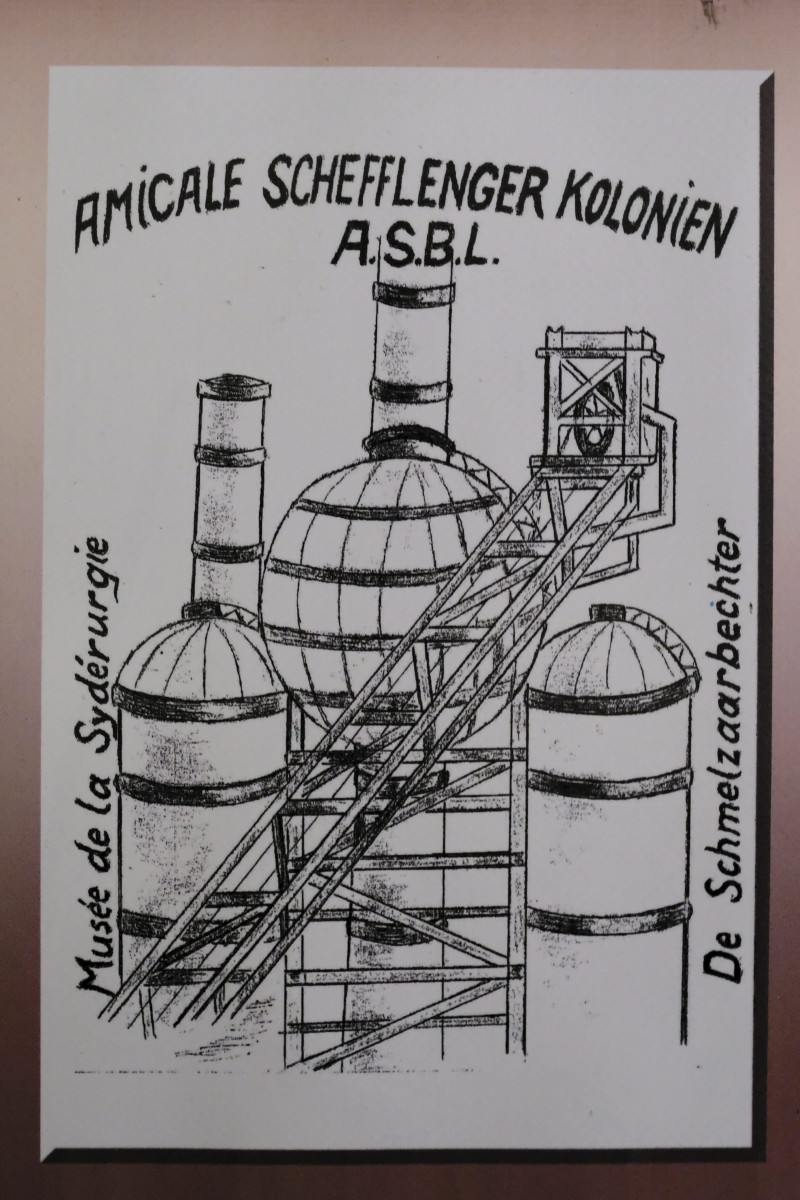 AMiCALE SCHEFFLENGER KOLONiEN
A.S.B.L.
Musée de la Sydérurgie
De Schmelzaarbechter